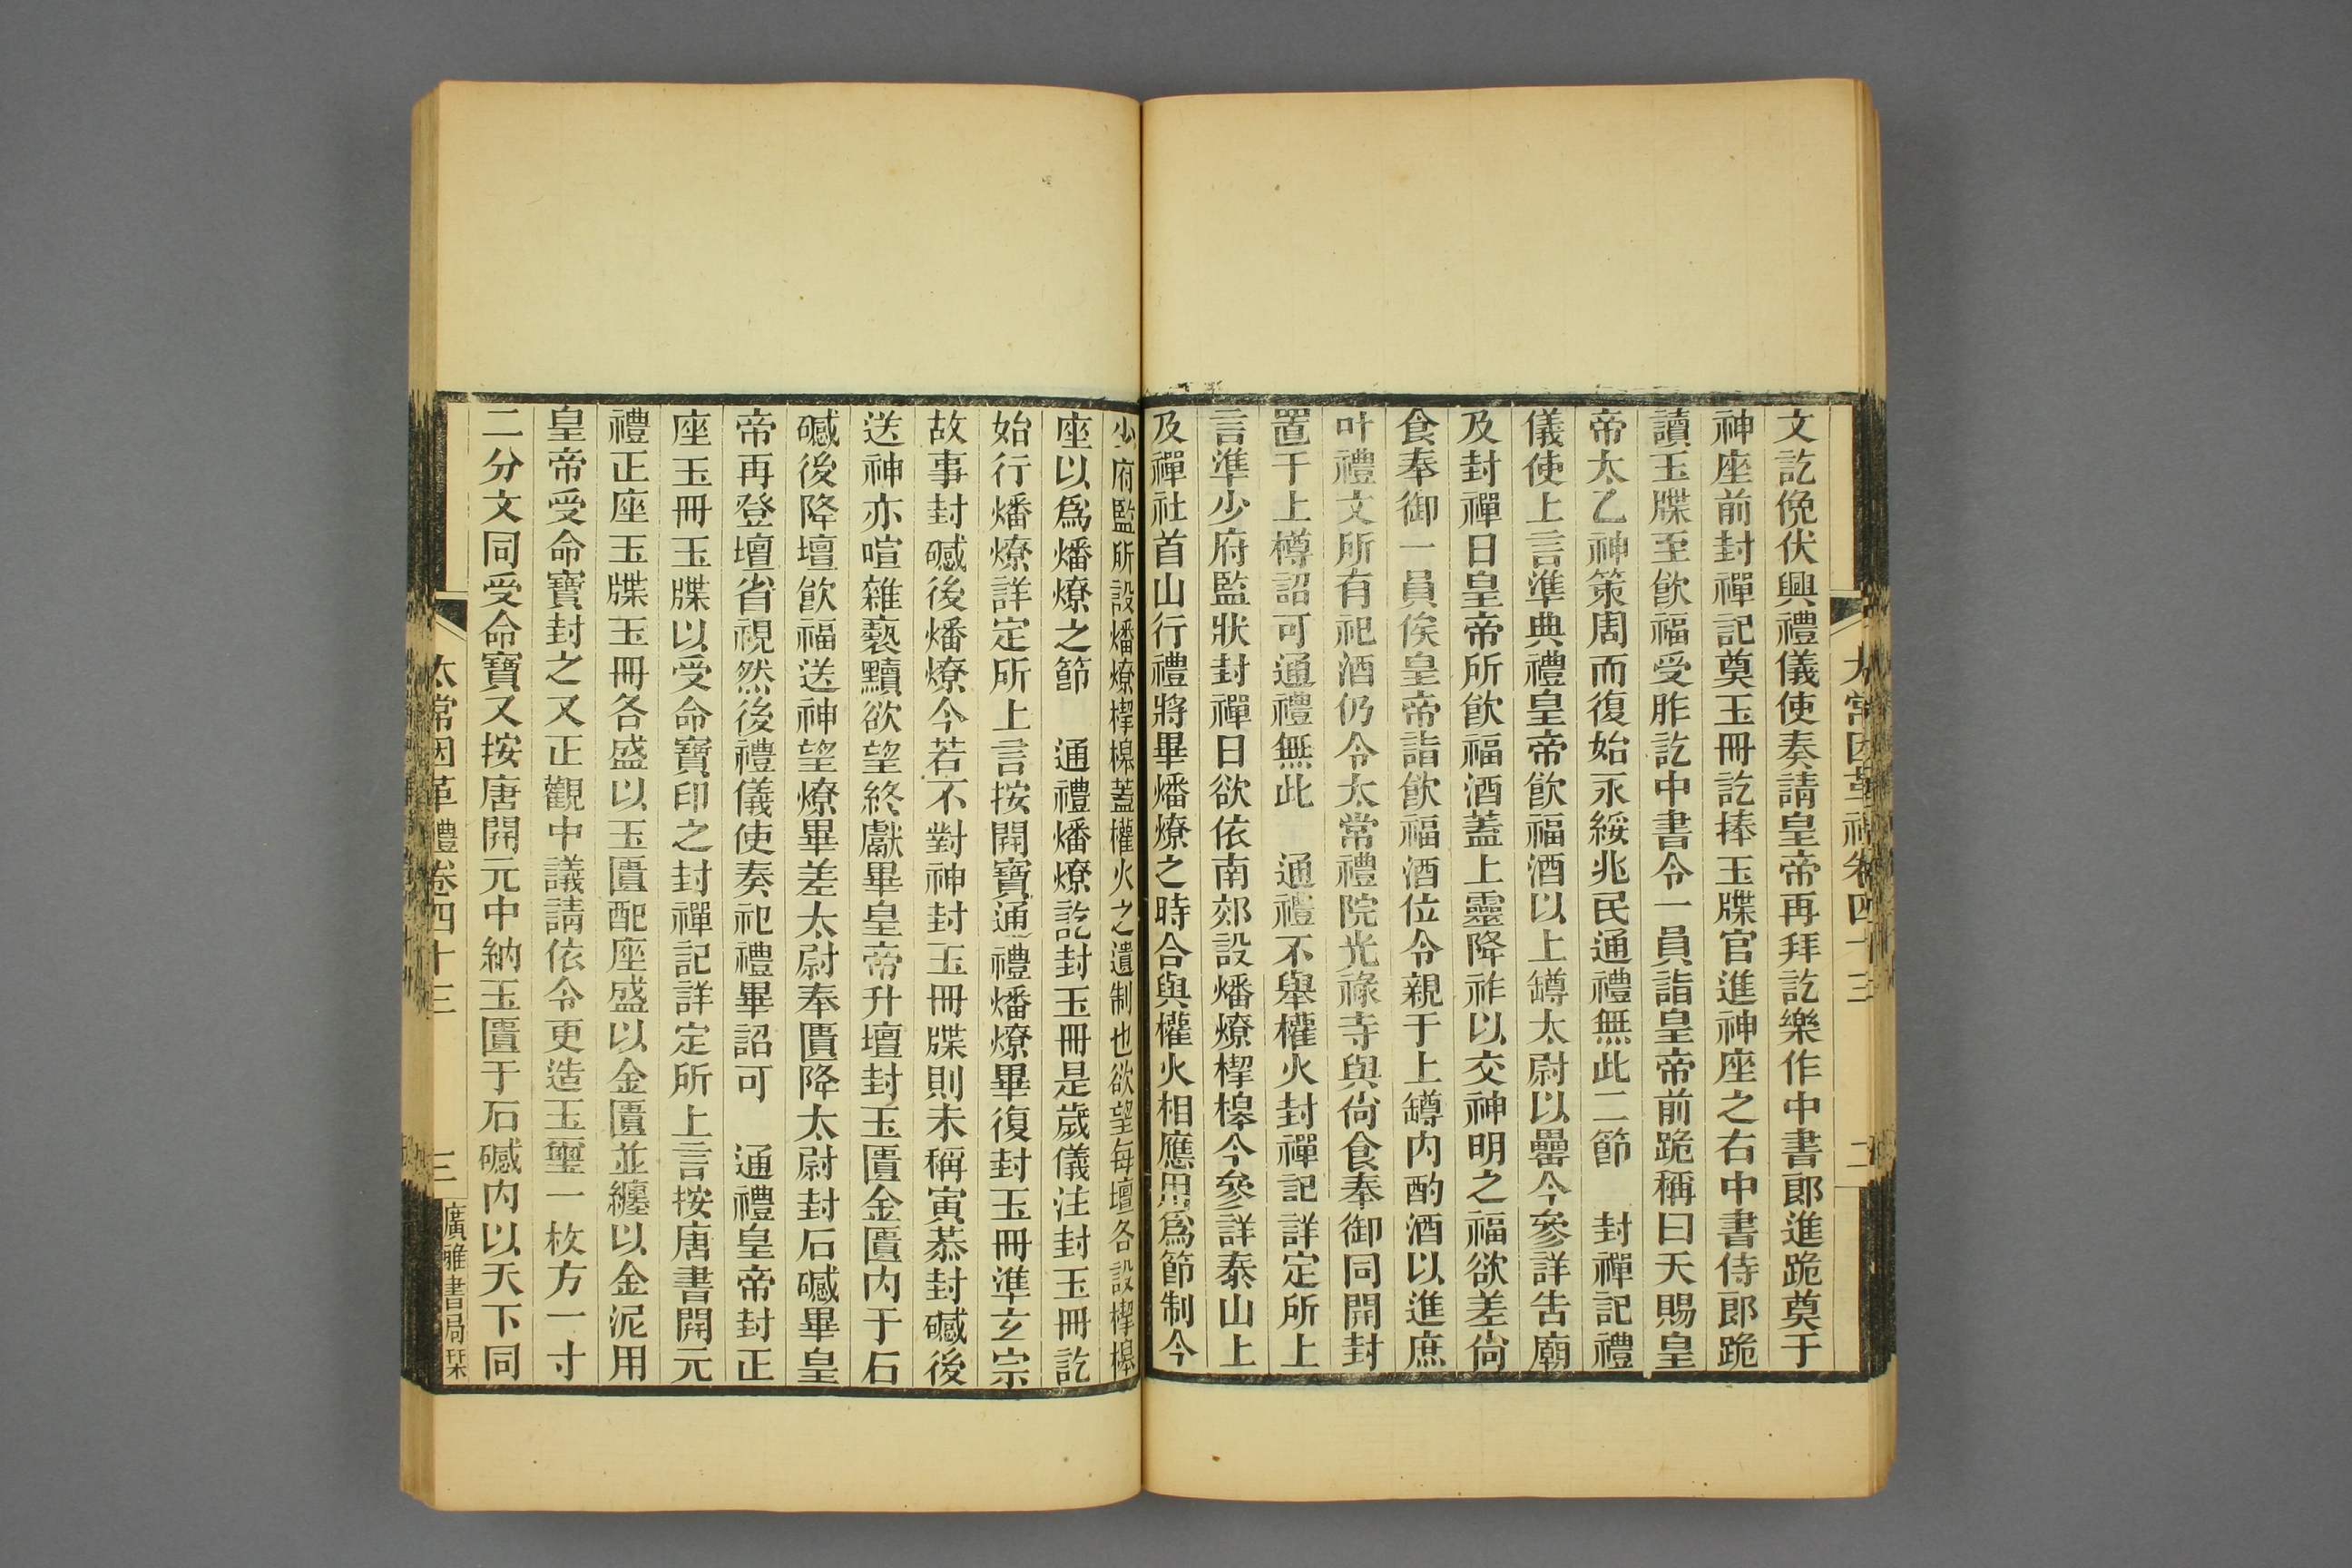 太常因革禮卷四十三
二
文訖俛伏興禮儀使奏請皇帝再拜訖樂作中書郎進跪奠于
神座前封禪記奠玉冊訖捧玉牒官進神座之右中書侍郎跪
讀玉牒至飮福受胙訖中書令一員詣皇帝前跪稱曰天賜皇
帝太乙神策周而復始永綏兆民通禮無此二節　封禪記禮
儀使上言準典禮皇帝飮福酒以上罇太尉以罍今參詳告廟
及封禪日皇帝所飮福酒蓋上靈降祚以交神明之福欲差尙
食奉御一員俟皇帝詣飮福酒位令親于上罇内酌酒以進庶
叶禮文所有祀酒仍令太常禮院光祿寺與尙食奉御同開封
置于上樽詔可通禮無此　通禮不舉權火封禪記詳定所上
言準少府監狀封禪日欲依南郊設燔燎楔槔今參詳泰山上
及禪社首山行禮將畢燔燎之時合與權火相應用爲節制今
少府監所設燔燎楔槔蓋權火之遺制也欲望每壇各設楔槔
座以爲燔燎之節　通禮燔燎訖封玉冊是歲儀注封玉冊訖
始行燔燎詳定所上言按開寶通禮燔燎畢復封玉冊準玄宗
故事封䃭後燔燎今若不對神封玉冊牒則未稱寅恭封䃭後
送神亦喧雜褻黷欲望終獻畢皇帝升壇封玉匱金匱内于石
䃭後降壇飮福送神望燎畢差太尉奉匱降太尉封石䃭畢皇
帝再登壇省視然後禮儀使奏祀禮畢詔可　通禮皇帝封正
座玉冊玉牒以受命寶印之封禪記詳定所上言按唐書開元
禮正座玉牒玉冊各盛以玉匱配座盛以金匱並纏以金泥用
皇帝受命寶封之又正觀中議請依令更造玉璽一枚方一寸
二分文同受命寶又按唐開元中納玉匱于石䃭内以天下同
太常因革禮卷四十三
三
廣雅書局栞